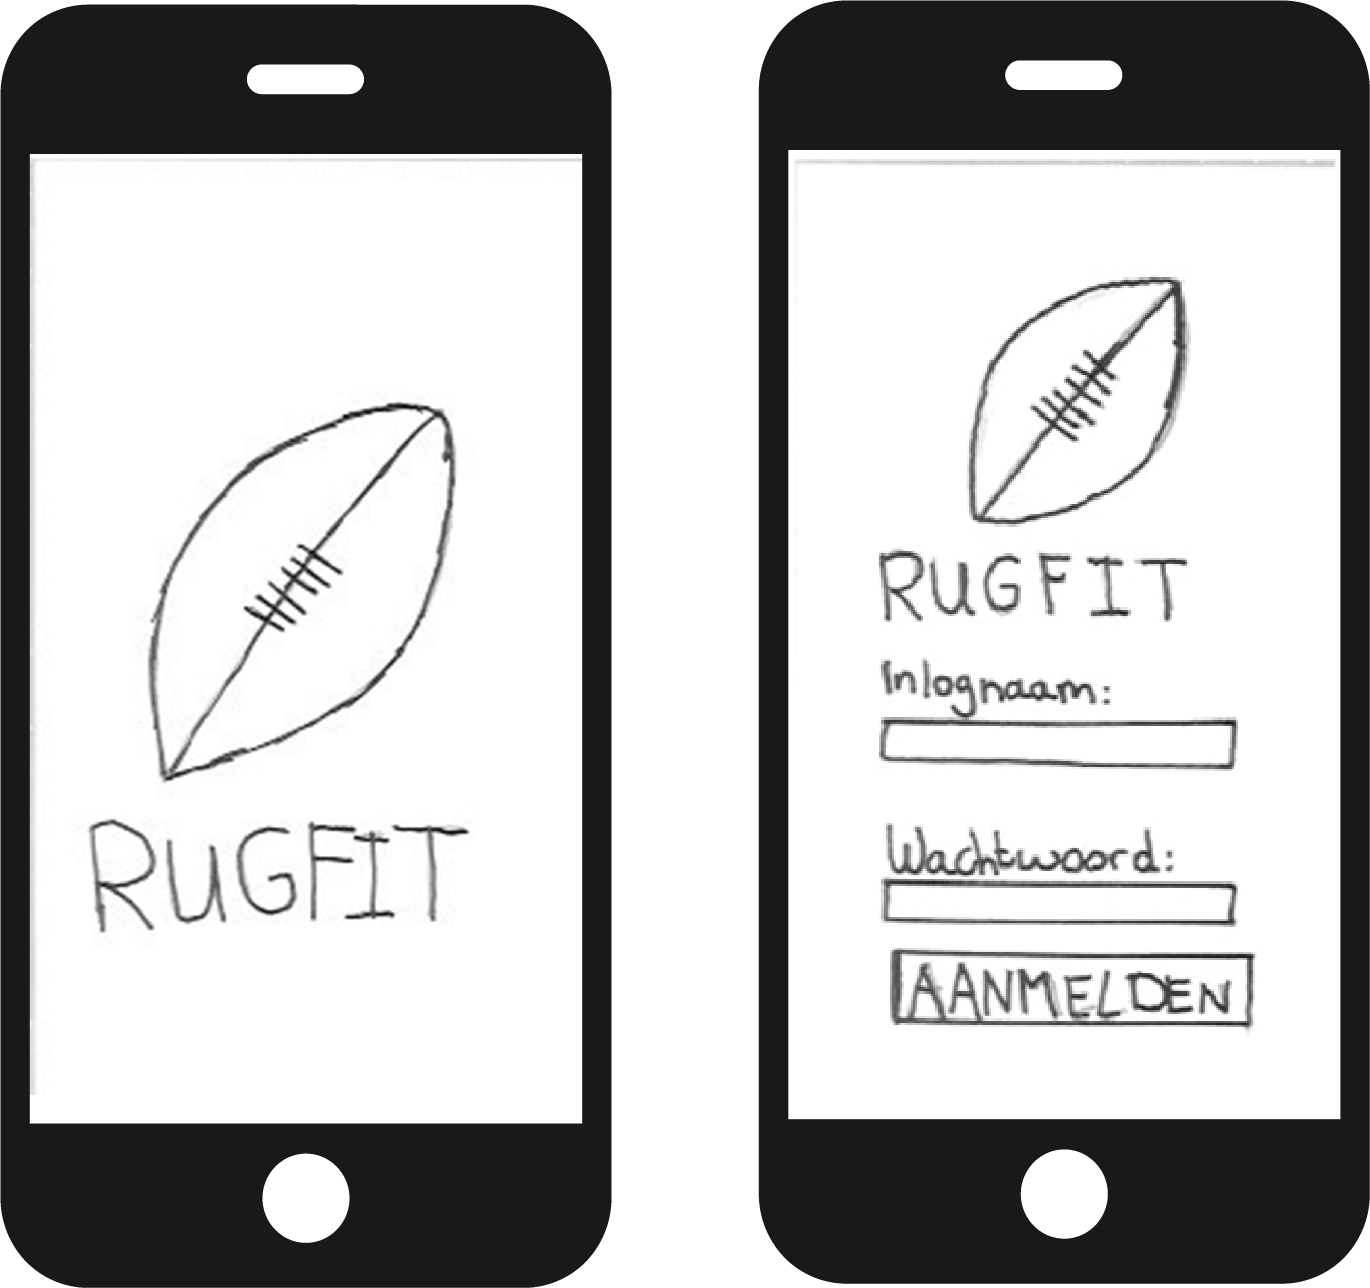 RUGFIT
RUGFIT
Inlognaam:
Wachtwoord:
AANMELDEN